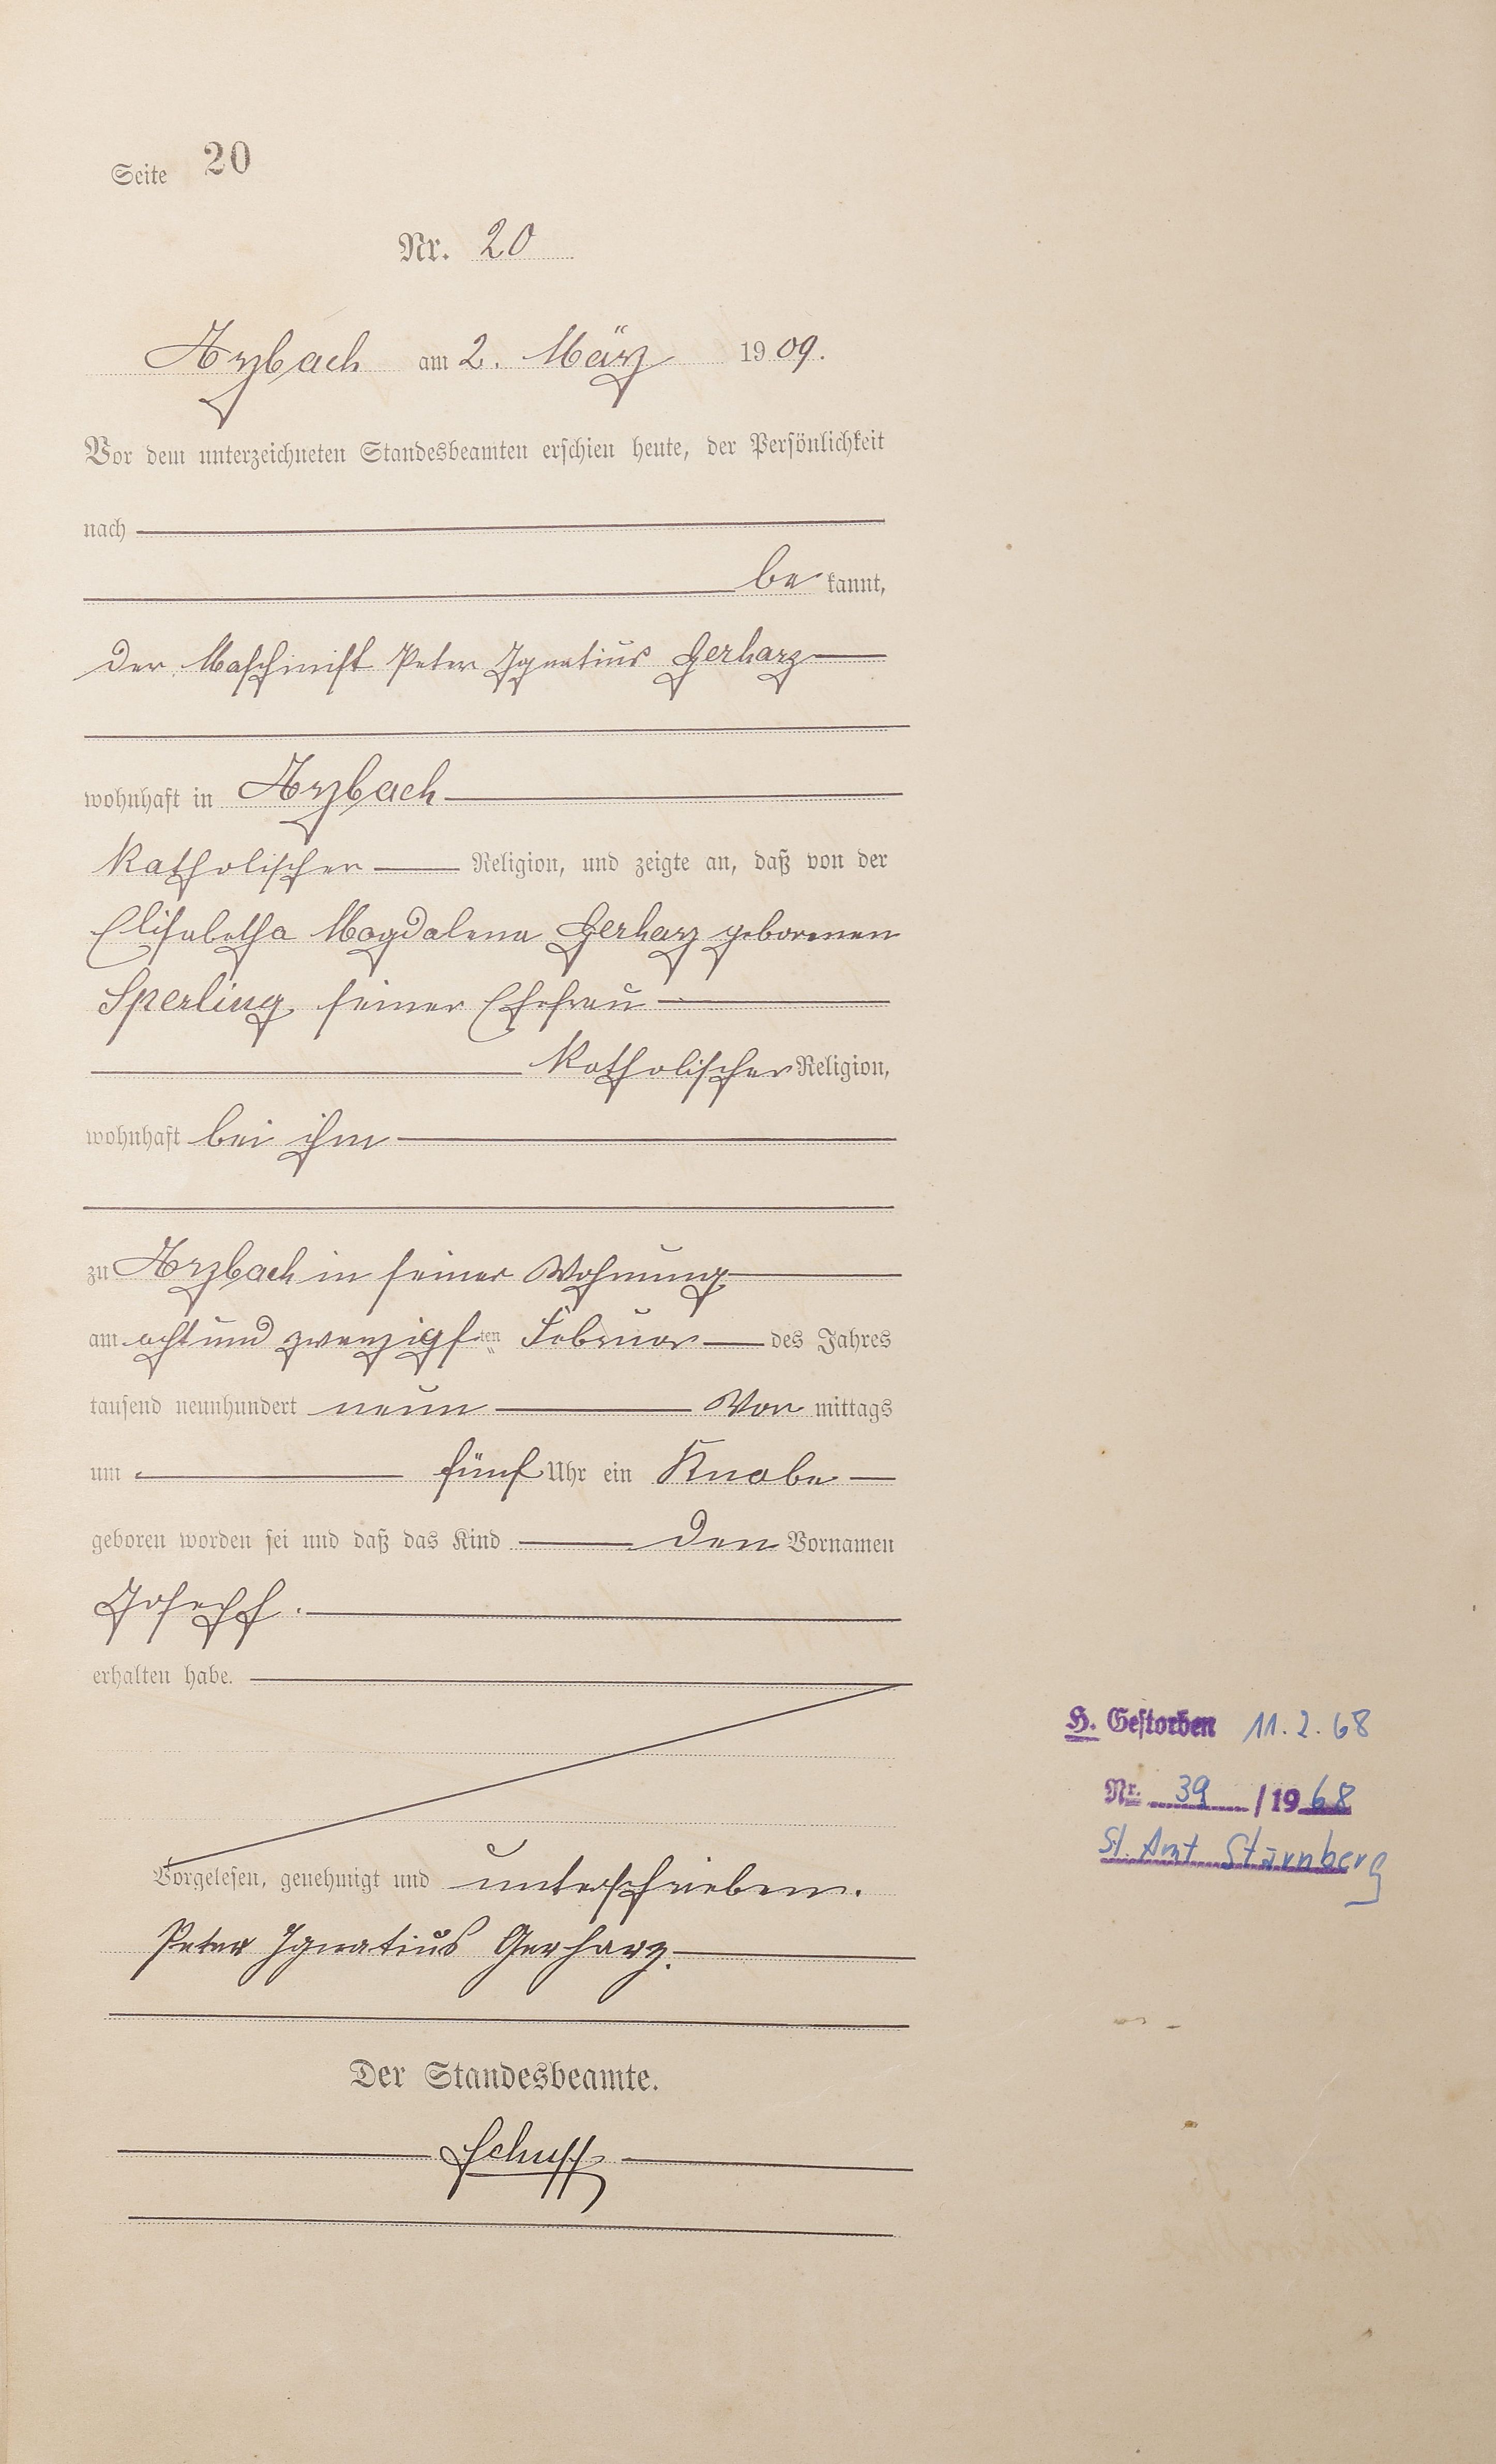 Seite 20
Nr. 20
Arzbach am 2. März 1909.
Vor dem unterzeichneten Standesbeamten erschien heute, der Persönlichkeit
nach
be kannt,
der Maschinist Peter Ignatius Gerharz
wohnhaft in Arzbach
katholischer Religion, und zeigte an, daß von der
Elisabetha Magdalena Gerharz geborenen
Sperling, seiner Ehefrau
katholischer Religion,
wohnhaft bei ihm
zu Arzbach in seiner Wohnung
am acht und zwanzigsten Februar des Jahres
tausend neunhundert neun Vor mittags
um fünf Uhr ein Knabe
geboren worden sei und daß das Kind den Vornamen
Joseph.
erhalten habe.
H. Gestorben 11.2.68
Nr. 39 / 1968
St. Amt Starnberg
Vorgelesen, genehmigt und unterschrieben.
Peter Ignatius Gerharz.
Der Standesbeamte.
Schuff